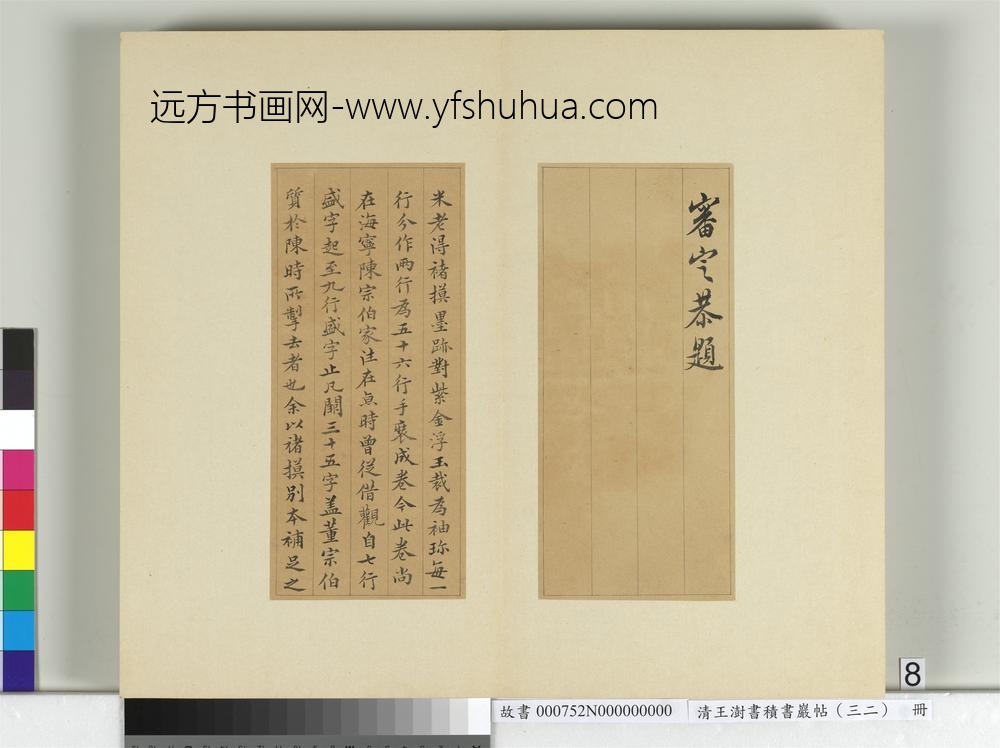 远方书画网-www.yfshuhua.com
審定恭題
米老得褚摸墨跡對紫金浮玉裁為袖珎每一
行分作兩行為五十六行手裝成卷今此卷尚
在海寧陳宗伯家往在京時曾從借觀自七行
盛字起至九行盛字止凡闕三十五字盖董宗伯
質於陳時所掣去者也余以褚摸別本補足之
8
故書 000752N000000000 清王澍書積書巖帖（三二） 冊